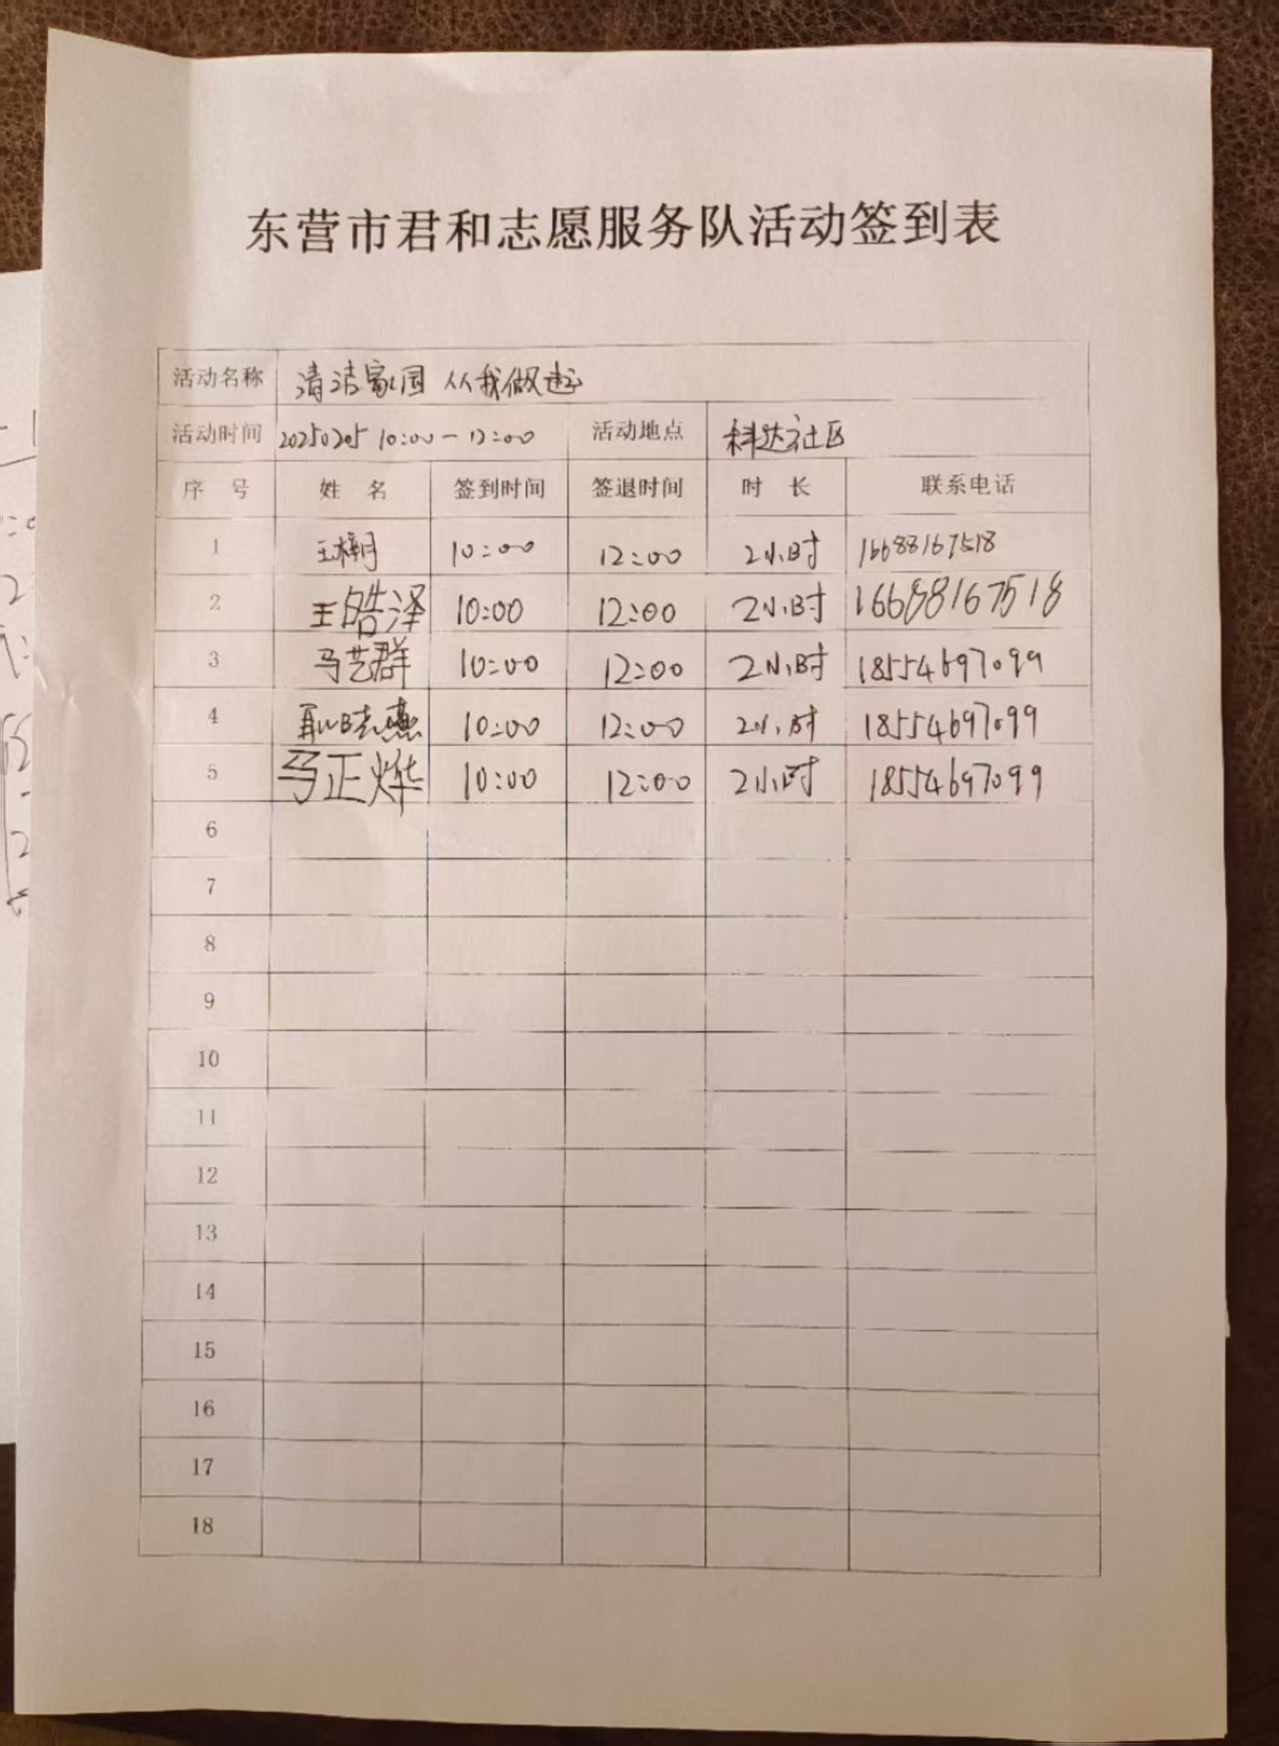 东营市君和志愿服务队活动签到表
活动名称 清洁家园 从我做起
活动时间 20250205 10:00-12:00 活动地点 科达社区
序 号 姓 名 签到时间 签退时间 时 长 联系电话
1 王 10:00 12:00 2小时 16688167518
2 王皓泽 10:00 12:00 2小时 16688167518
3 马艺群 10:00 12:00 2小时 18554697099
4 10:00 12:00 2小时 18554697099
5 马正烨 10:00 12:00 2小时 18554697099
6
7
8
9
10
11
12
13
14
15
16
17
18